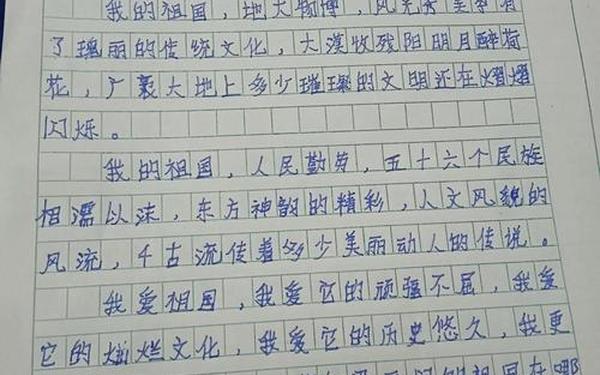 我的祖国，地大物博，风光秀美孕育
了瑰丽的传统文化，大漠收残阳明月醉荷
花，广袤大地上多少璀璨的文明还在熠熠
闪烁。
我的祖国，人民勤劳，五十六个民族
相濡以沫，东方神韵的精彩，人文风貌的
风流，千古流传着多少美丽动人的传说。
我爱祖国，我爱它的顽强不屈，我爱
它的灿烂文化，我爱它的历史悠久，我更
的祖国在哪